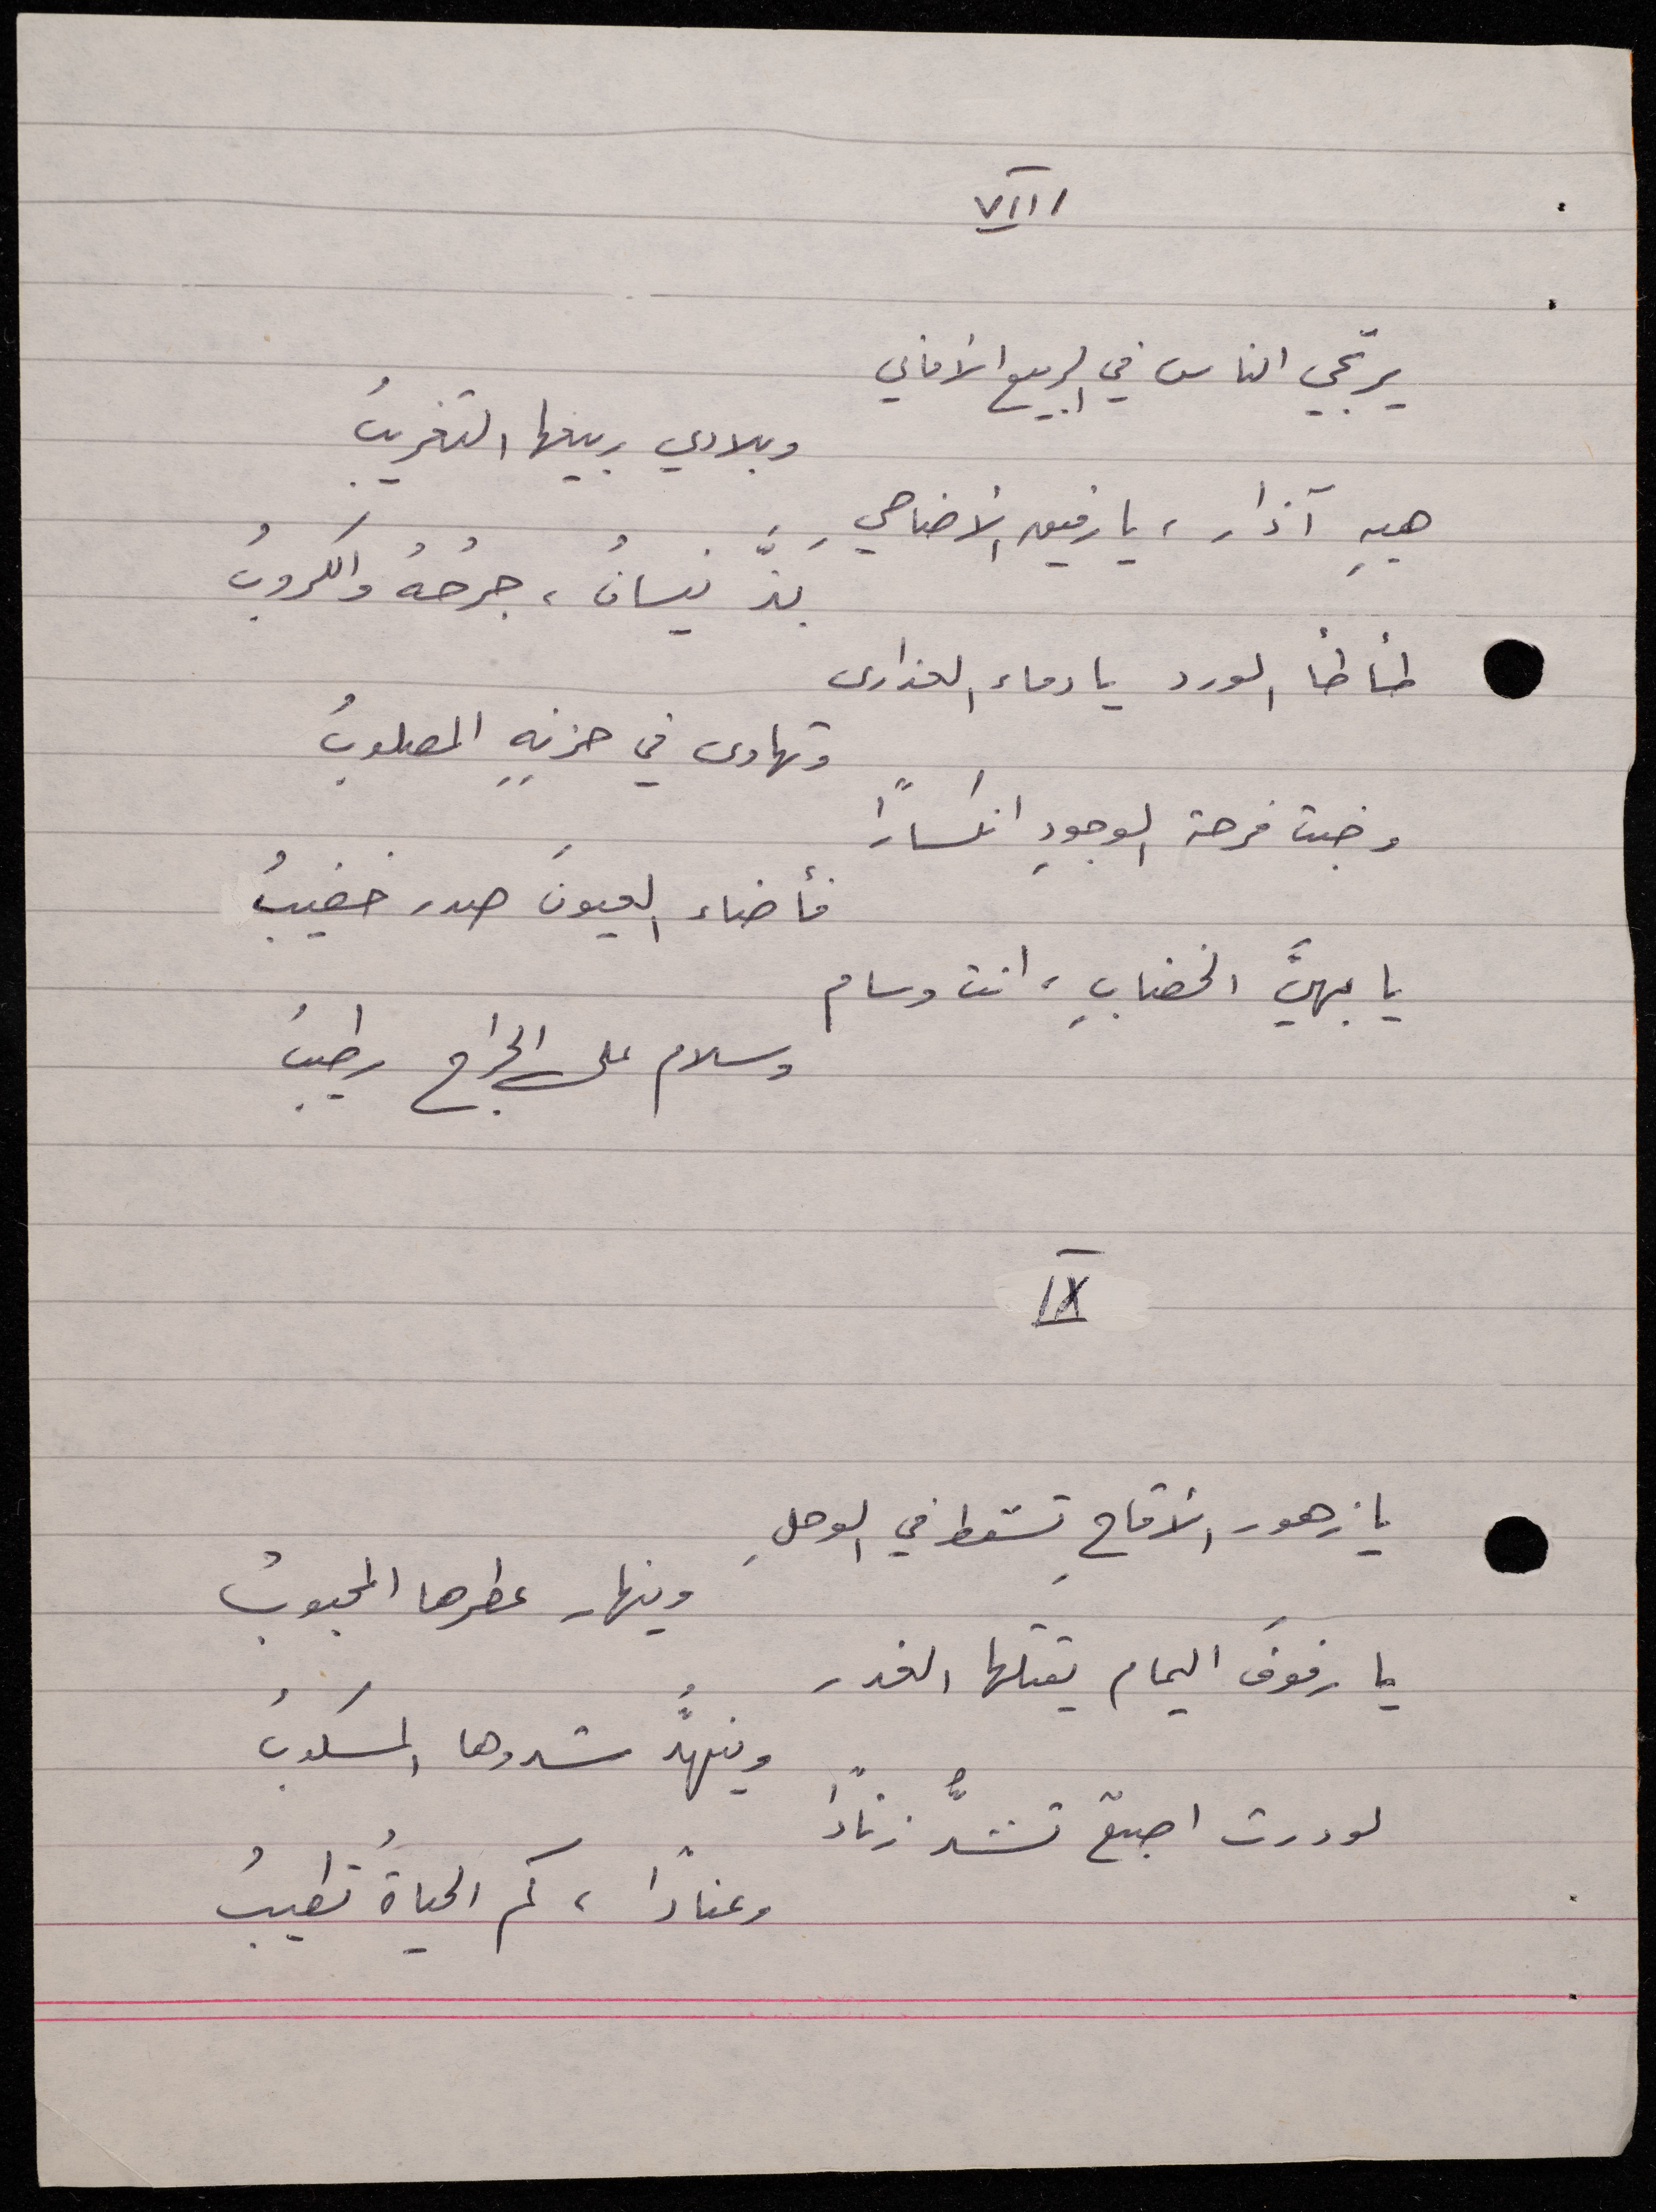 VIII
يرتجي الناس في الربيع الأماني
وبلادي ربيعها التغريبُ
هيهِ آذار، يا رفيق الأضاحي
بَذَّ نيسانُ، جرُحُهُ والكروبُ
طأطأ الورد يا دماء العذارى
وتهاوى في حزنِهِ المصلوبُ
وخبت فرحة الوجودِ انكسَارًا
فأضاء العيونَ صدر خضيبُ
يا بهيَّ الخضابِ، انت وسام
وسلام على الجراح رطيبُ
IX
يا زهور الأقاحِ تسقط في الوحلِ
وينهار عطرها المحبوبُ
يا رفوفَ اليمام يقتلها الغدر
وينهدُّ شدوها المسكوبُ
لو درت اصبعٌ تشدُّ زنادًا
وعنادًا، كم الحياةُ تطيبُ